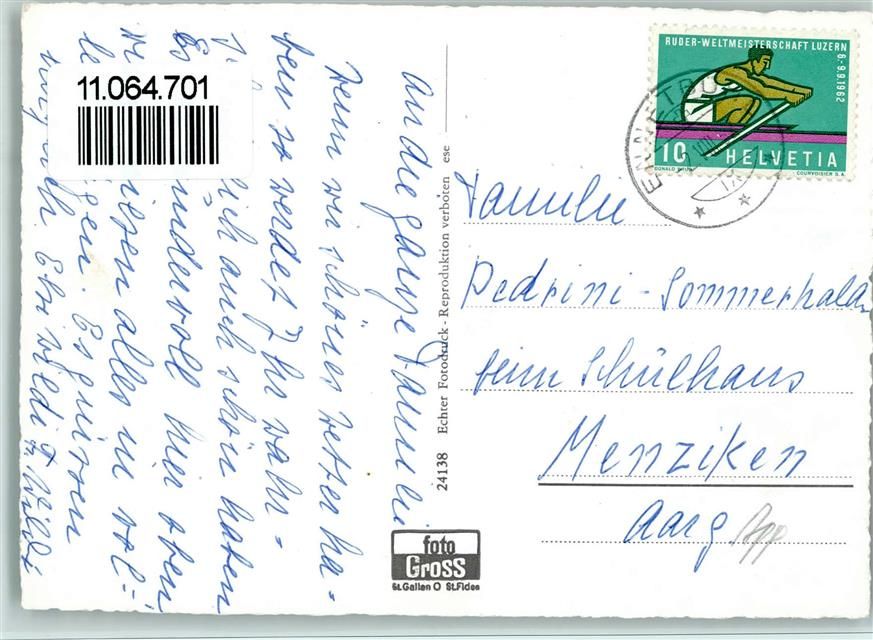 11.064.701
An die ganze Familie
Wenn wir schönes Wetter ha-
ben so werdet Ihr wahr-
lich auch schön haben
Es wundervoll hier oben
alles in vol-
gen. Es grüssen
Ehr. Wildi
24138 Echter Fotodruck - Reproduktion verboten ese
foto
Gross
St.Gallen O St.Fiden
RUDER-WELTMEISTERSCHAFT LUZERN
6.-9.9.1962
10 HELVETIA
DONALD BRUN COURVOISIER S.A.
Familie
Pedrini-Sommerhalder
beim Schulhaus
Menziken
Aarg